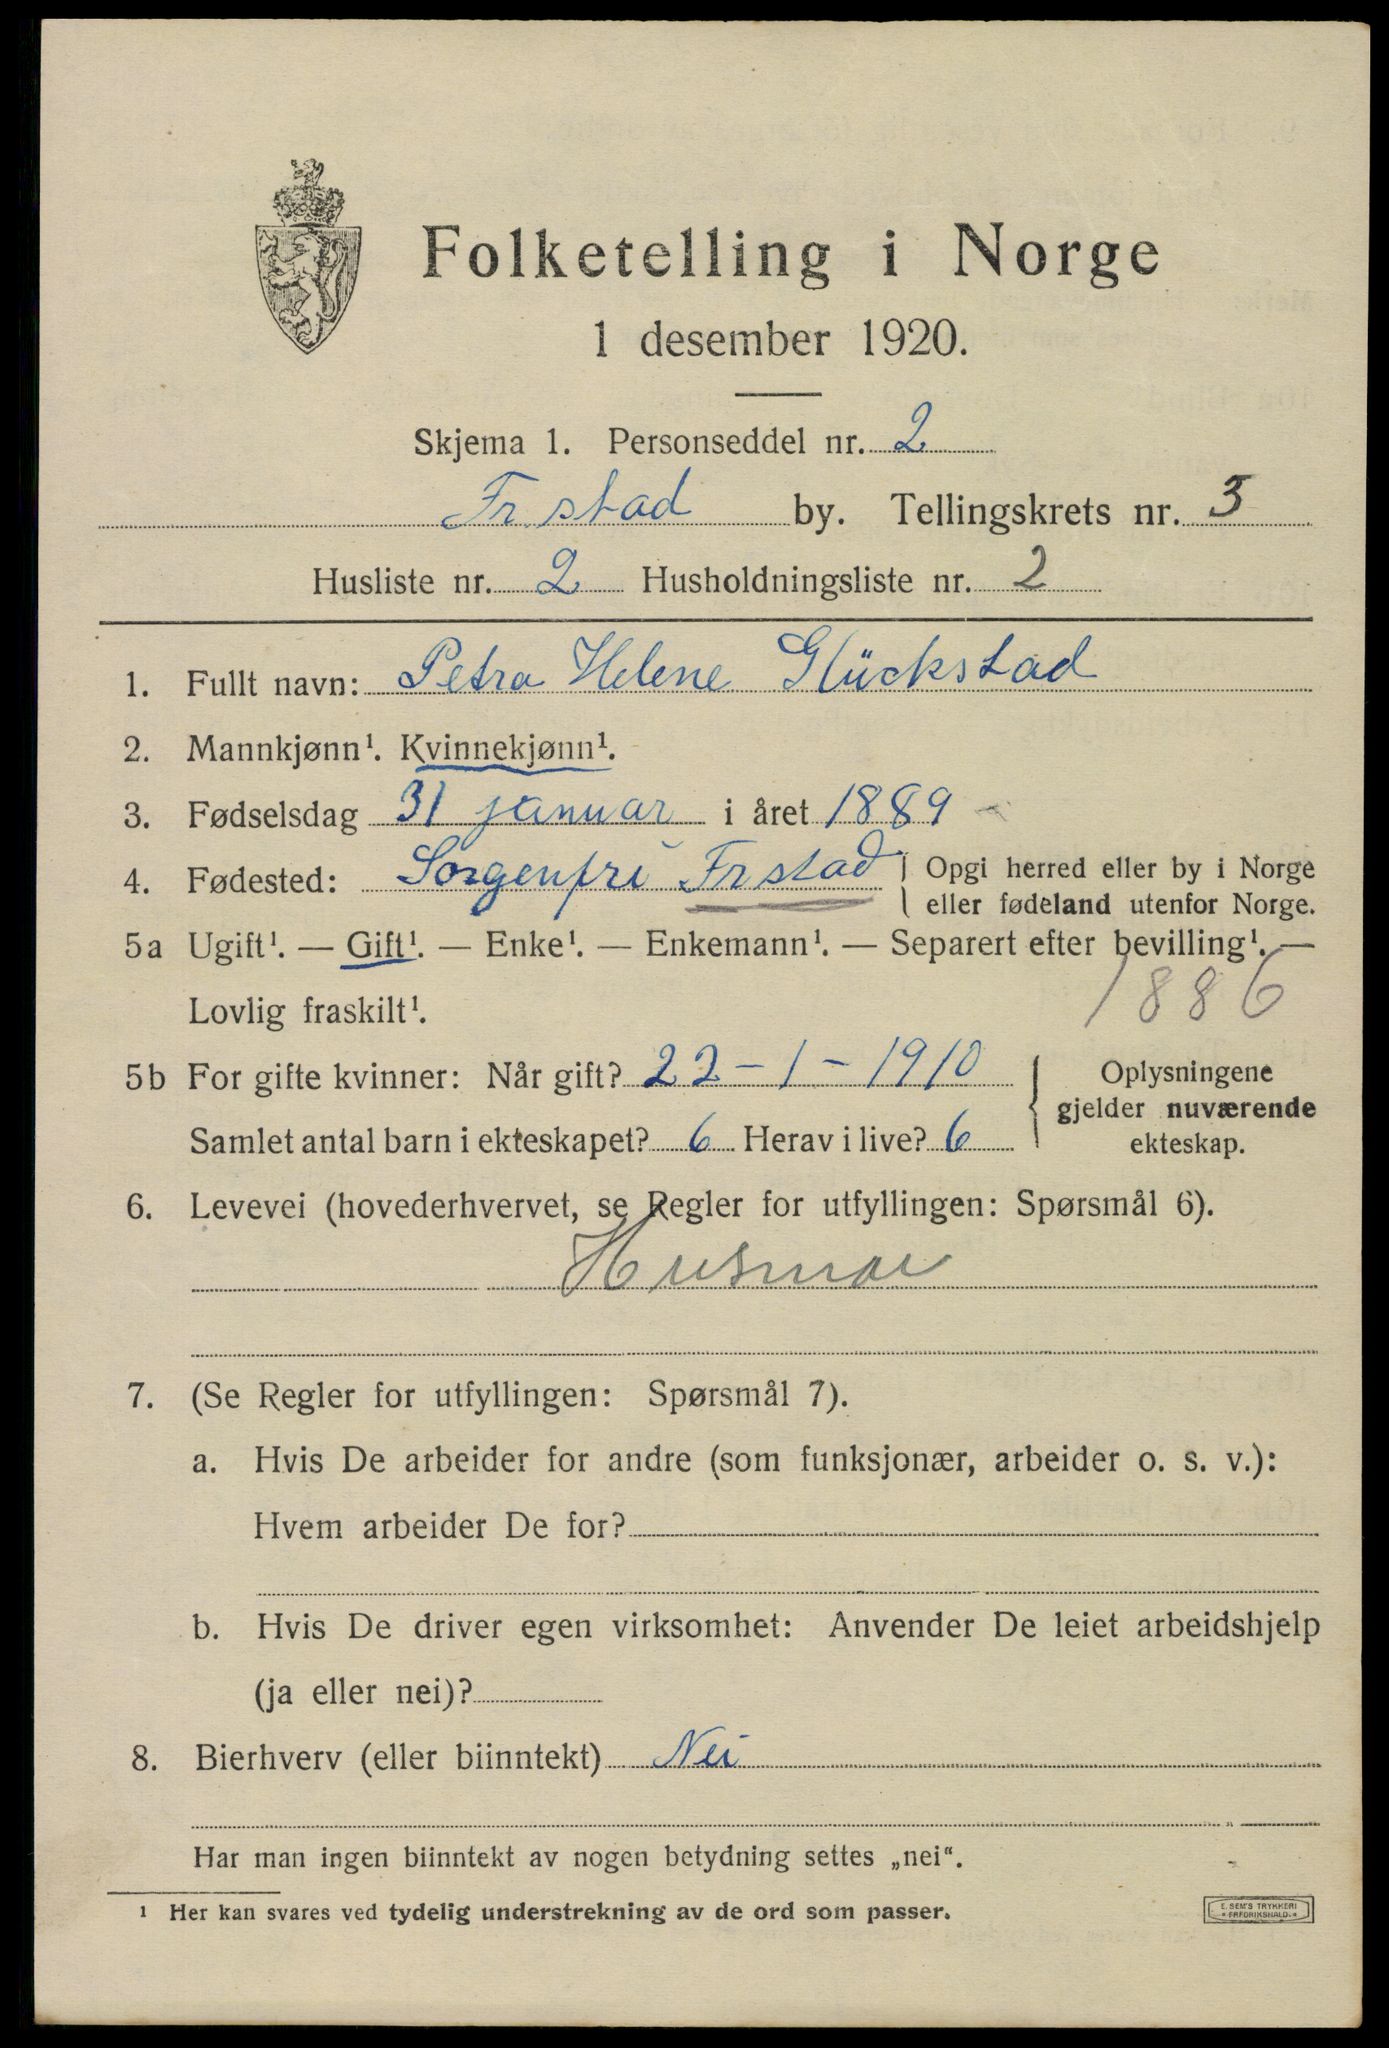 Folketelling i Norge
1 desember 1920.
Skjema 1. Personseddel nr. 2
Fr.stad by. Tellingskrets nr. 3
Husliste nr. 2 Husholdningsliste nr. 2
1. Fullt navn: Petra Helene Glückstad
2. Mannkjønn¹. Kvinnekjønn¹.
3. Fødselsdag 31 januar i året 1889
4. Fødested: Sorgenfri Frstad { Opgi herred eller by i Norge
eller fødeland utenfor Norge.
5a Ugift¹. — Gift¹. — Enke¹. — Enkemann¹. — Separert efter bevilling¹. —
Lovlig fraskilt¹. 1886
5b For gifte kvinner: Når gift? 22-1-1910
Samlet antal barn i ekteskapet? 6 Herav i live? 6
Oplysningene
gjelder nuværende
ekteskap.
6. Levevei (hovederhvervet, se Regler for utfyllingen: Spørsmål 6).
Husmor
7. (Se Regler for utfyllingen: Spørsmål 7).
a. Hvis De arbeider for andre (som funksjonær, arbeider o. s. v.):
Hvem arbeider De for?
b. Hvis De driver egen virksomhet: Anvender De leiet arbeidshjelp
(ja eller nei)?
8. Bierhverv (eller biinntekt) Nei
Har man ingen biinntekt av nogen betydning settes „nei“.
¹ Her kan svares ved tydelig understrekning av de ord som passer.
E. SEM'S TRYKKERI
FREDRIKSHALD